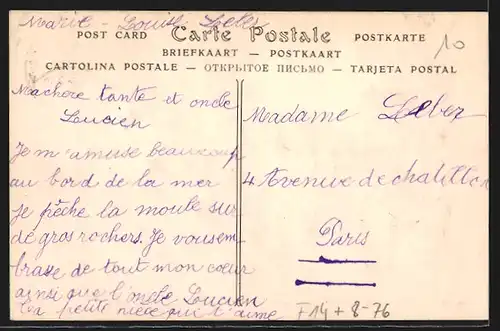 Marie - Louise Leber
Carte Postale
POST CARD
POSTKARTE
BRIEFKAART — POSTKAART
CARTOLINA POSTALE — ОТКРЫТОЕ ПИСЬМО — TARJETA POSTAL
10
Ma chère tante et oncle
Lucien
Je m'amuse beaucoup
au bord de la mer
je pêche la moule sur
de gros rochers. Je vous em
brasse de tout mon coeur
ainsi que l'oncle Lucien
ta petite nièce qui t'aime
Madame Leber
4 Avenue de chatillon
Paris
F 14 + 8-76